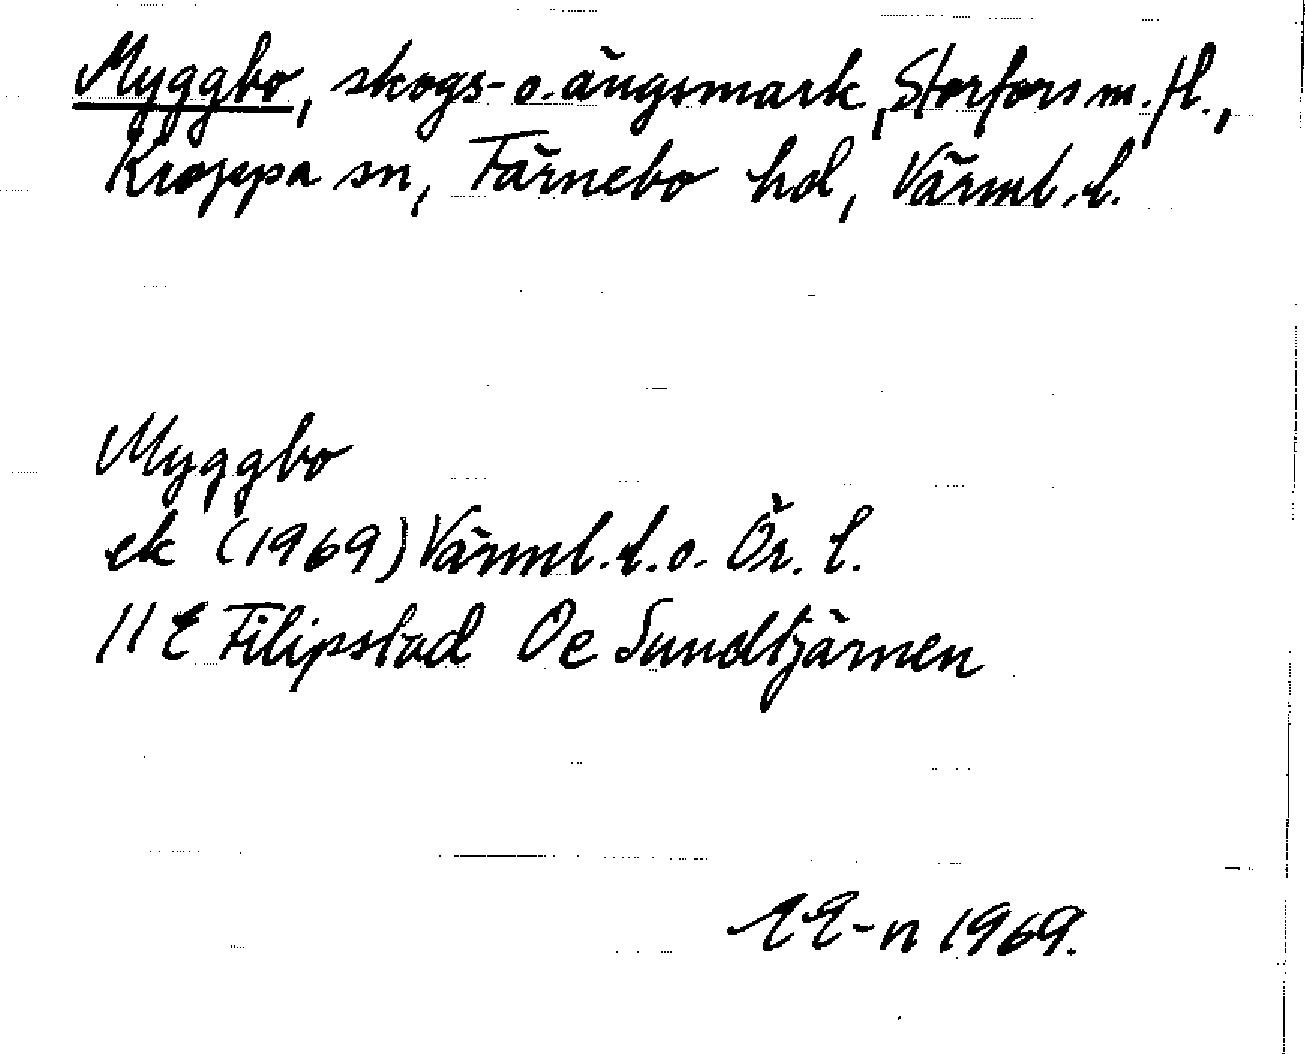 Myggbo, skogs- o. ängsmark, Storfors m. fl.,
Kroppa sn, Färnebo hd, Värml. l.
Myggbo
ek (1969) Värml. l. o. Ör. l.
11 E Filipstad Oe Sundtjärnen
EE-n 1969.